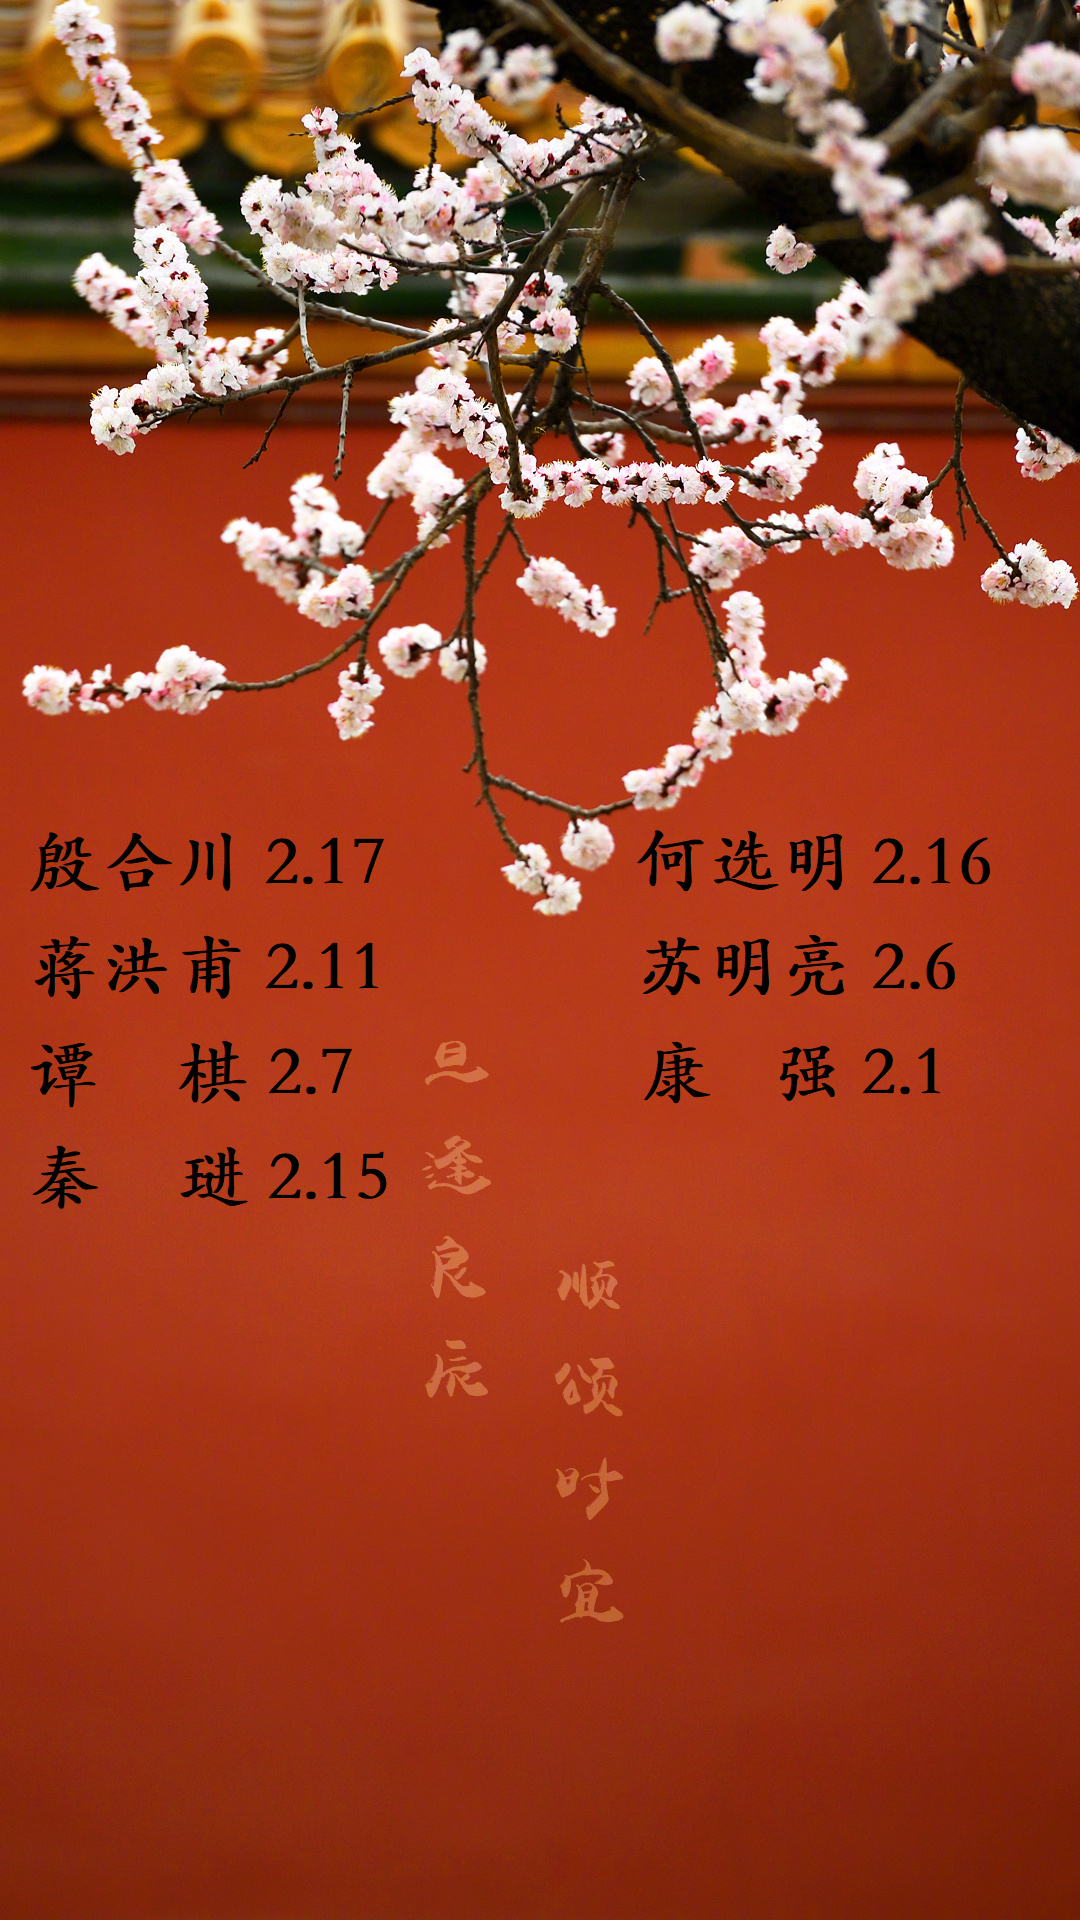 殷合川 2.17
何选明 2.16
蒋洪甫 2.11
苏明亮 2.6
谭 棋 2.7
康 强 2.1
秦 琎 2.15
旦逢良辰
顺颂时宜